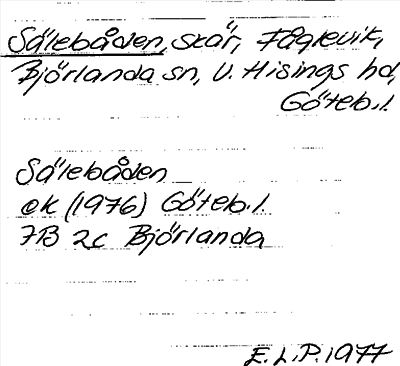 Sälebåden, skär, Fåglevik,
Björlanda sn, V. Hisings hd,
Göteb. l.
Sälebåden
ek (1976) Göteb. l.
7B 2c Björlanda
E. L. P. 1977